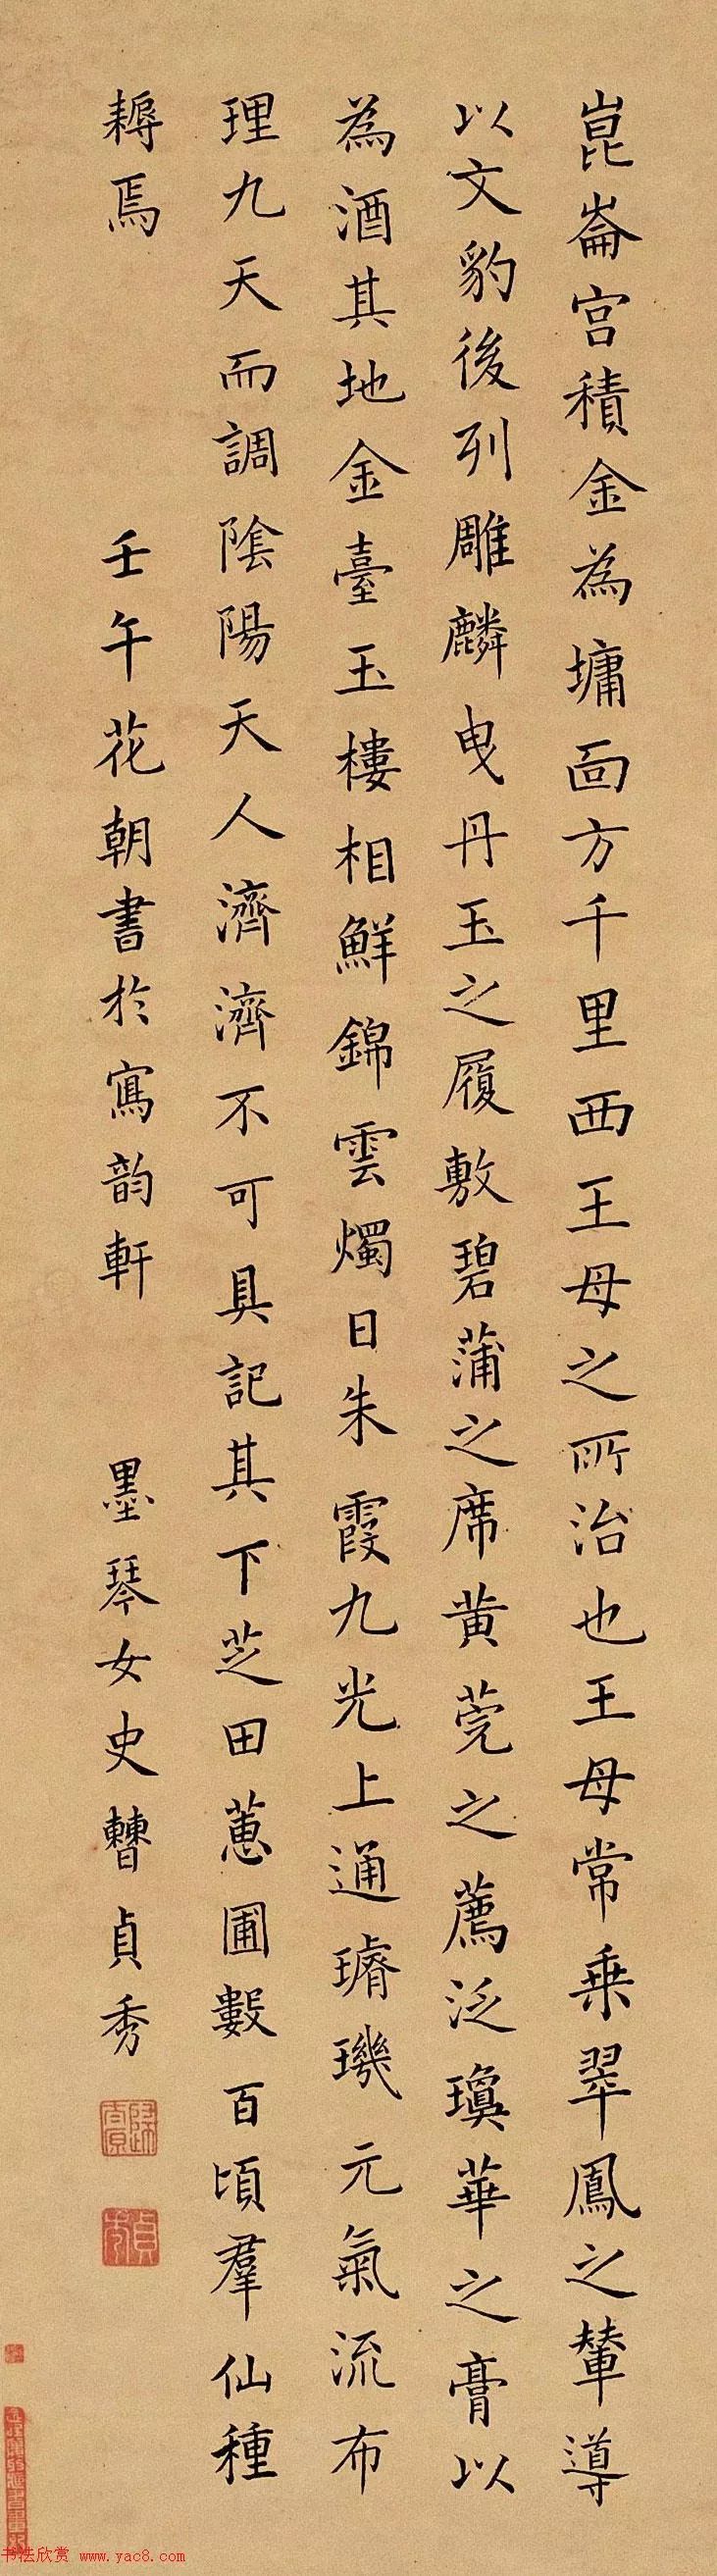 崑崙宮積金為墉面方千里西王母之所治也王母常乗翠鳳之輦導
以文豹後列雕麟曳丹玉之履敷碧蒲之席黄莞之薦泛瓊華之膏以
為酒其地金臺玉樓相鮮錦雲燭日朱霞九光上通璿璣元氣流布
理九天而調陰陽天人濟濟不可具記其下芝田蕙圃數百頃羣仙種
耨焉
壬午花朝書於寫韵軒
墨琴女史曹貞秀
书法欣赏 www.yac8.com